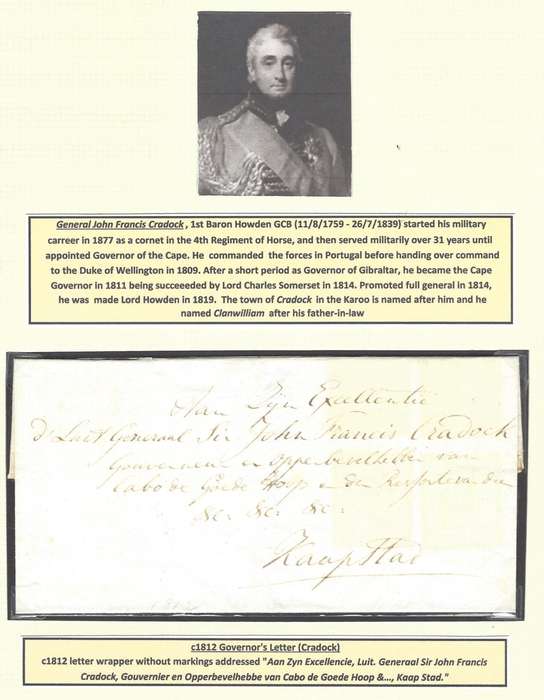 General John Francis Cradock , 1st Baron Howden GCB (11/8/1759 - 26/7/1839) started his military
carreer in 1877 as a cornet in the 4th Regiment of Horse, and then served militarily over 31 years until
appointed Governor of the Cape. He commanded the forces in Portugal before handing over command
to the Duke of Wellington in 1809. After a short period as Governor of Gibraltar, he became the Cape
Governor in 1811 being succeeeded by Lord Charles Somerset in 1814. Promoted full general in 1814,
he was made Lord Howden in 1819. The town of Cradock in the Karoo is named after him and he
named Clanwilliam after his father-in-law
Aan Zyn Excellentie
D' Luit Generaal Sir John Francis Cradock
Gouverneur en Opperbevelhebber van
Cabo de Goede Hoop en
&c &c &c
Kaap Stad
c1812 Governor's Letter (Cradock)
c1812 letter wrapper without markings addressed "Aan Zyn Excellencie, Luit. Generaal Sir John Francis
Cradock, Gouvernier en Opperbevelhebbe van Cabo de Goede Hoop &..., Kaap Stad."